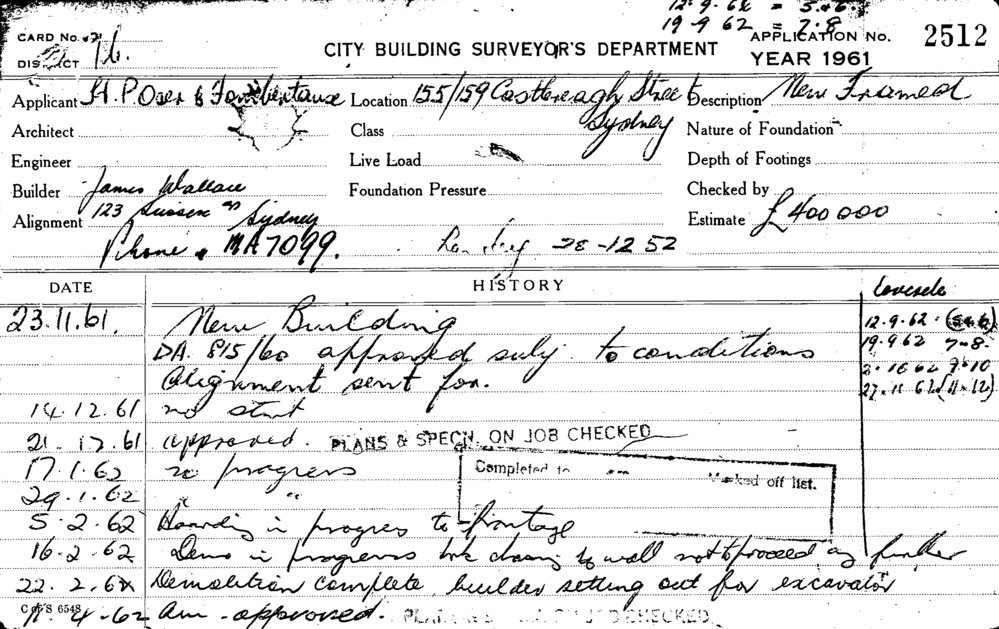 12.9.62 = 5.&6.
19-9 62 = 7.8
CARD No.
DISTRICT 16.
CITY BUILDING SURVEYOR'S DEPARTMENT
APPLICATION No. 2512
YEAR 1961
Applicant H. P Oser & Location 155/159 Castlereagh Street Sydney Description New Framed
Architect Class Nature of Foundation
Engineer Live Load Depth of Footings
Builder James Wallace Foundation Pressure Checked by
Alignment 123 Sussex St Sydney Estimate £400 000
Phone. MA7099. 28-12 52
DATE HISTORY
23.11.61. New Building 12.9.62. (5&6)
DA. 815/60 approved subj. to conditions 19.9 62 7-8.
Alignment sent for. 9.10
14.12.61 no start 27.11 62 (11-12)
21.12.61 approved. PLANS & SPECN. ON JOB CHECKED
17.1.62 no progress Completed to Marked off list.
29.1.62 " "
5.2.62 Hoarding in progress to frontage
16.2.62 Demo in progress to wall not to proceed any further
22.2.62 Demolition complete builder setting out for excavator
C of S 6548
11.4.62 am. approved. PLANS & ON JOB CHECKED.